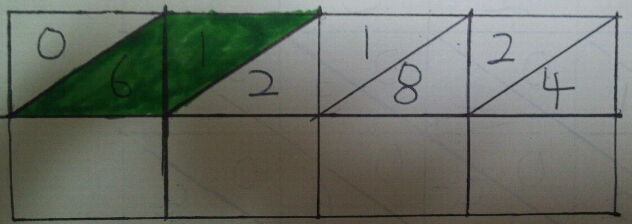 0 6 1 2 1 8 2 4